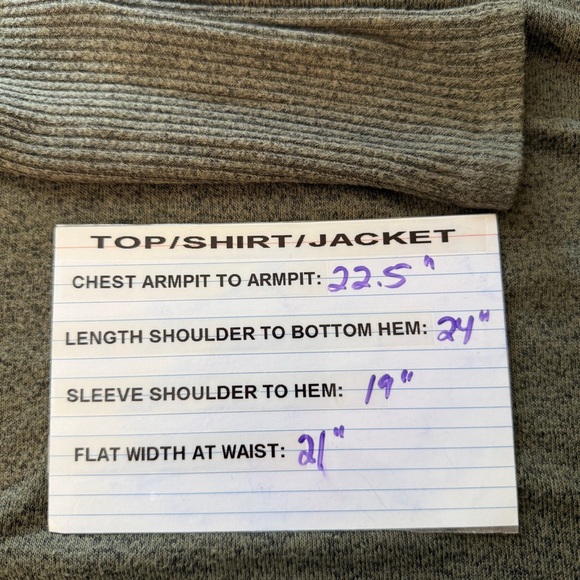 TOP/SHIRT/JACKET
CHEST ARMPIT TO ARMPIT: 22.5"
LENGTH SHOULDER TO BOTTOM HEM: 24"
SLEEVE SHOULDER TO HEM: 19"
FLAT WIDTH AT WAIST: 21"